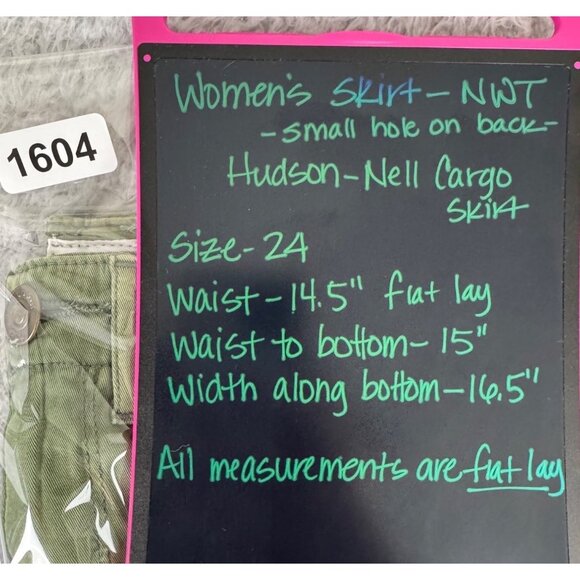 1604
Women's Skirt - NWT
- small hole on back -
Hudson - Nell Cargo
Skirt
Size - 24
Waist - 14.5" flat lay
Waist to bottom - 15"
Width along bottom - 16.5"
All measurements are flat lay